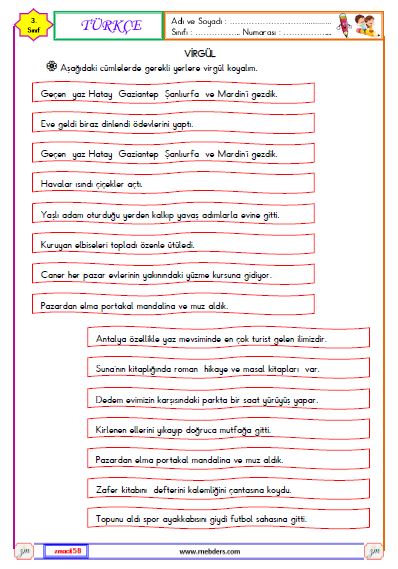 3.
Sınıf
TÜRKÇE
Adı ve Soyadı : ……………………………………
Sınıfı : ……………… Numarası : ………………
VİRGÜL
Aşağıdaki cümlelerde gerekli yerlere virgül koyalım.
Geçen yaz Hatay Gaziantep Şanlıurfa ve Mardin'i gezdik.
Eve geldi biraz dinlendi ödevlerini yaptı.
Geçen yaz Hatay Gaziantep Şanlıurfa ve Mardin'i gezdik.
Havalar ısındı çiçekler açtı.
Yaşlı adam oturduğu yerden kalkıp yavaş adımlarla evine gitti.
Kuruyan elbiseleri topladı özenle ütüledi.
Caner her pazar evlerinin yakınındaki yüzme kursuna gidiyor.
Pazardan elma portakal mandalina ve muz aldık.
Antalya özellikle yaz mevsiminde en çok turist gelen ilimizdir.
Suna'nın kitaplığında roman hikaye ve masal kitapları var.
Dedem evimizin karşısındaki parkta bir saat yürüyüş yapar.
Kirlenen ellerini yıkayıp doğruca mutfağa gitti.
Pazardan elma portakal mandalina ve muz aldık.
Zafer kitabını defterini kalemliğini çantasına koydu.
Topunu aldı spor ayakkabısını giydi futbol sahasına gitti.
zm zmacit58 www.mebders.com zm